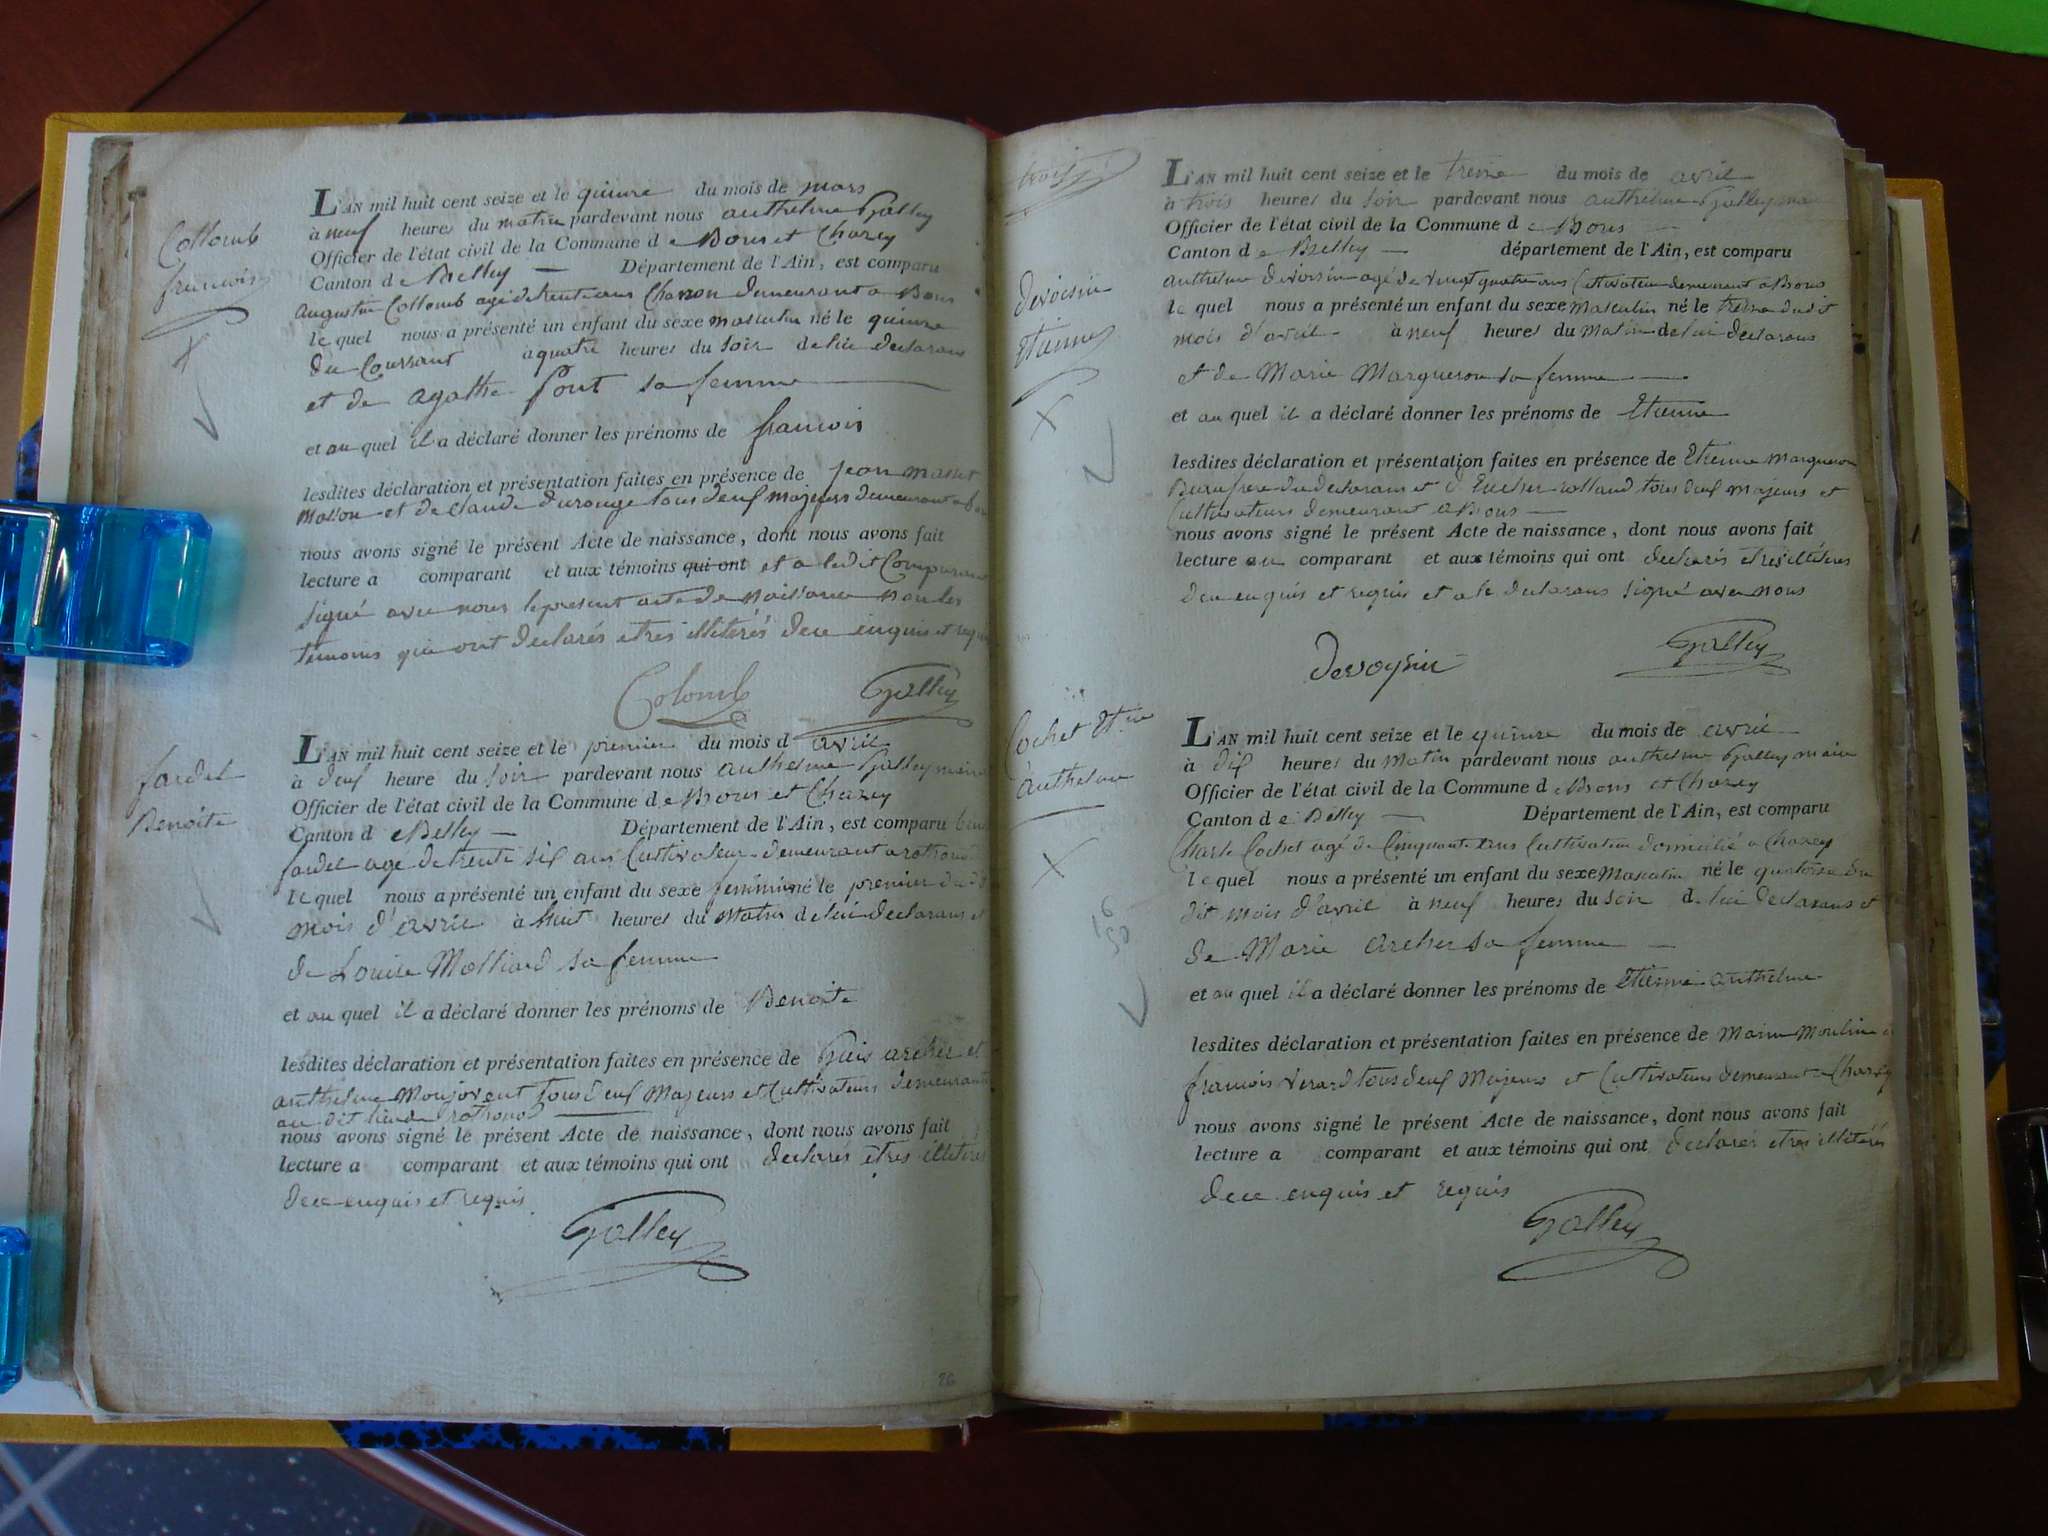 Collomb
francois
L'AN mil huit cent seize et le quinze du mois de mars
à neuf heures du matin pardevant nous anthelme Galley
Officier de l'état civil de la Commune de Bons et Chazey
Canton de Belley — Département de l'Ain, est comparu
augustin Collomb agé de trente ans Charron demeurant a Bons
le quel nous a présenté un enfant du sexe masculin né le quinze
du Courrant à quatre heures du soir de lui declarans
et de agathe Pont sa femme
et au quel il a déclaré donner les prénoms de francois
lesdites déclaration et présentation faites en présence de jean masset
Masson et de Claude durouge tous deux majeurs demeurant a
nous avons signé le présent Acte de naissance, dont nous avons fait
lecture a comparant et aux témoins qui ont et a ledit Comparant
signé avec nous le present acte de naissance non les
temoins qui ont declarés etres illiterés dece enquis et requis
Colomb Galley
fardel
Benoite
L'AN mil huit cent seize et le premier du mois d avril
à deux heure du soir pardevant nous anthelme Galley maire
Officier de l'état civil de la Commune de Bons et Chazey
Canton de Belley — Département de l'Ain, est comparu
fardel age de trente six ans Cultivateur demeurant a rothonod
le quel nous a présenté un enfant du sexe feminin né le premier dudit
mois d'avril à huit heures du Matin de lui declarans et
de Louise Molliard sa femme
et au quel il a déclaré donner les prénoms de Benoite
lesdites déclaration et présentation faites en présence de archer et
anthelme Monjovent tous deux Majeurs et Cultivateurs demeurants
au dit lieu de rothonod
nous avons signé le présent Acte de naissance, dont nous avons fait
lecture a comparant et aux témoins qui ont declarés etres illiterés
dece enquis et requis
Galley
26
trois
devoisin
Etienne
L'AN mil huit cent seize et le treize du mois de avril
à trois heures du soir pardevant nous anthelme Galley maire
Officier de l'état civil de la Commune de Bons
Canton de Belley — département de l'Ain, est comparu
anthelme devoisin agé de vingt quatre ans Cultivateur demeurant a Bons
le quel nous a présenté un enfant du sexe masculin né le treize dudit
mois d'avril à neuf heures du Matin de lui declarans
et de Marie Margueron sa femme
et au quel il a déclaré donner les prénoms de Etienne
lesdites déclaration et présentation faites en présence de Etienne margueron
Beaufrere du declarans et d'Eucher rolland tous deux majeurs et
Cultivateurs demeurant a Bons
nous avons signé le présent Acte de naissance, dont nous avons fait
lecture au comparant et aux témoins qui ont declarés etres illitéres
dece enquis et requis et a le declarans signé avec nous
devoysin Galley
Cochet Et.ne
anthelme
16
50
L'AN mil huit cent seize et le quinze du mois de avril
à dix heures du Matin pardevant nous anthelme Galley maire
Officier de l'état civil de la Commune de Bons et Chazey
Canton de Belley — Département de l'Ain, est comparu
Charle Cochet agé de Cinquante ans Cultivateur domicilié a Chazey
le quel nous a présenté un enfant du sexe Masculin né le quatorze du
dit mois d'avril à neuf heures du soir de lui declarans et
de Marie archer sa femme
et au quel il a déclaré donner les prénoms de Etienne anthelme
lesdites déclaration et présentation faites en présence de Moulin
francois Verard tous deux Majeurs et Cultivateurs demeurant a Chazey
nous avons signé le présent Acte de naissance, dont nous avons fait
lecture a comparant et aux témoins qui ont declarés etres illiterés
dece enquis et requis
Galley